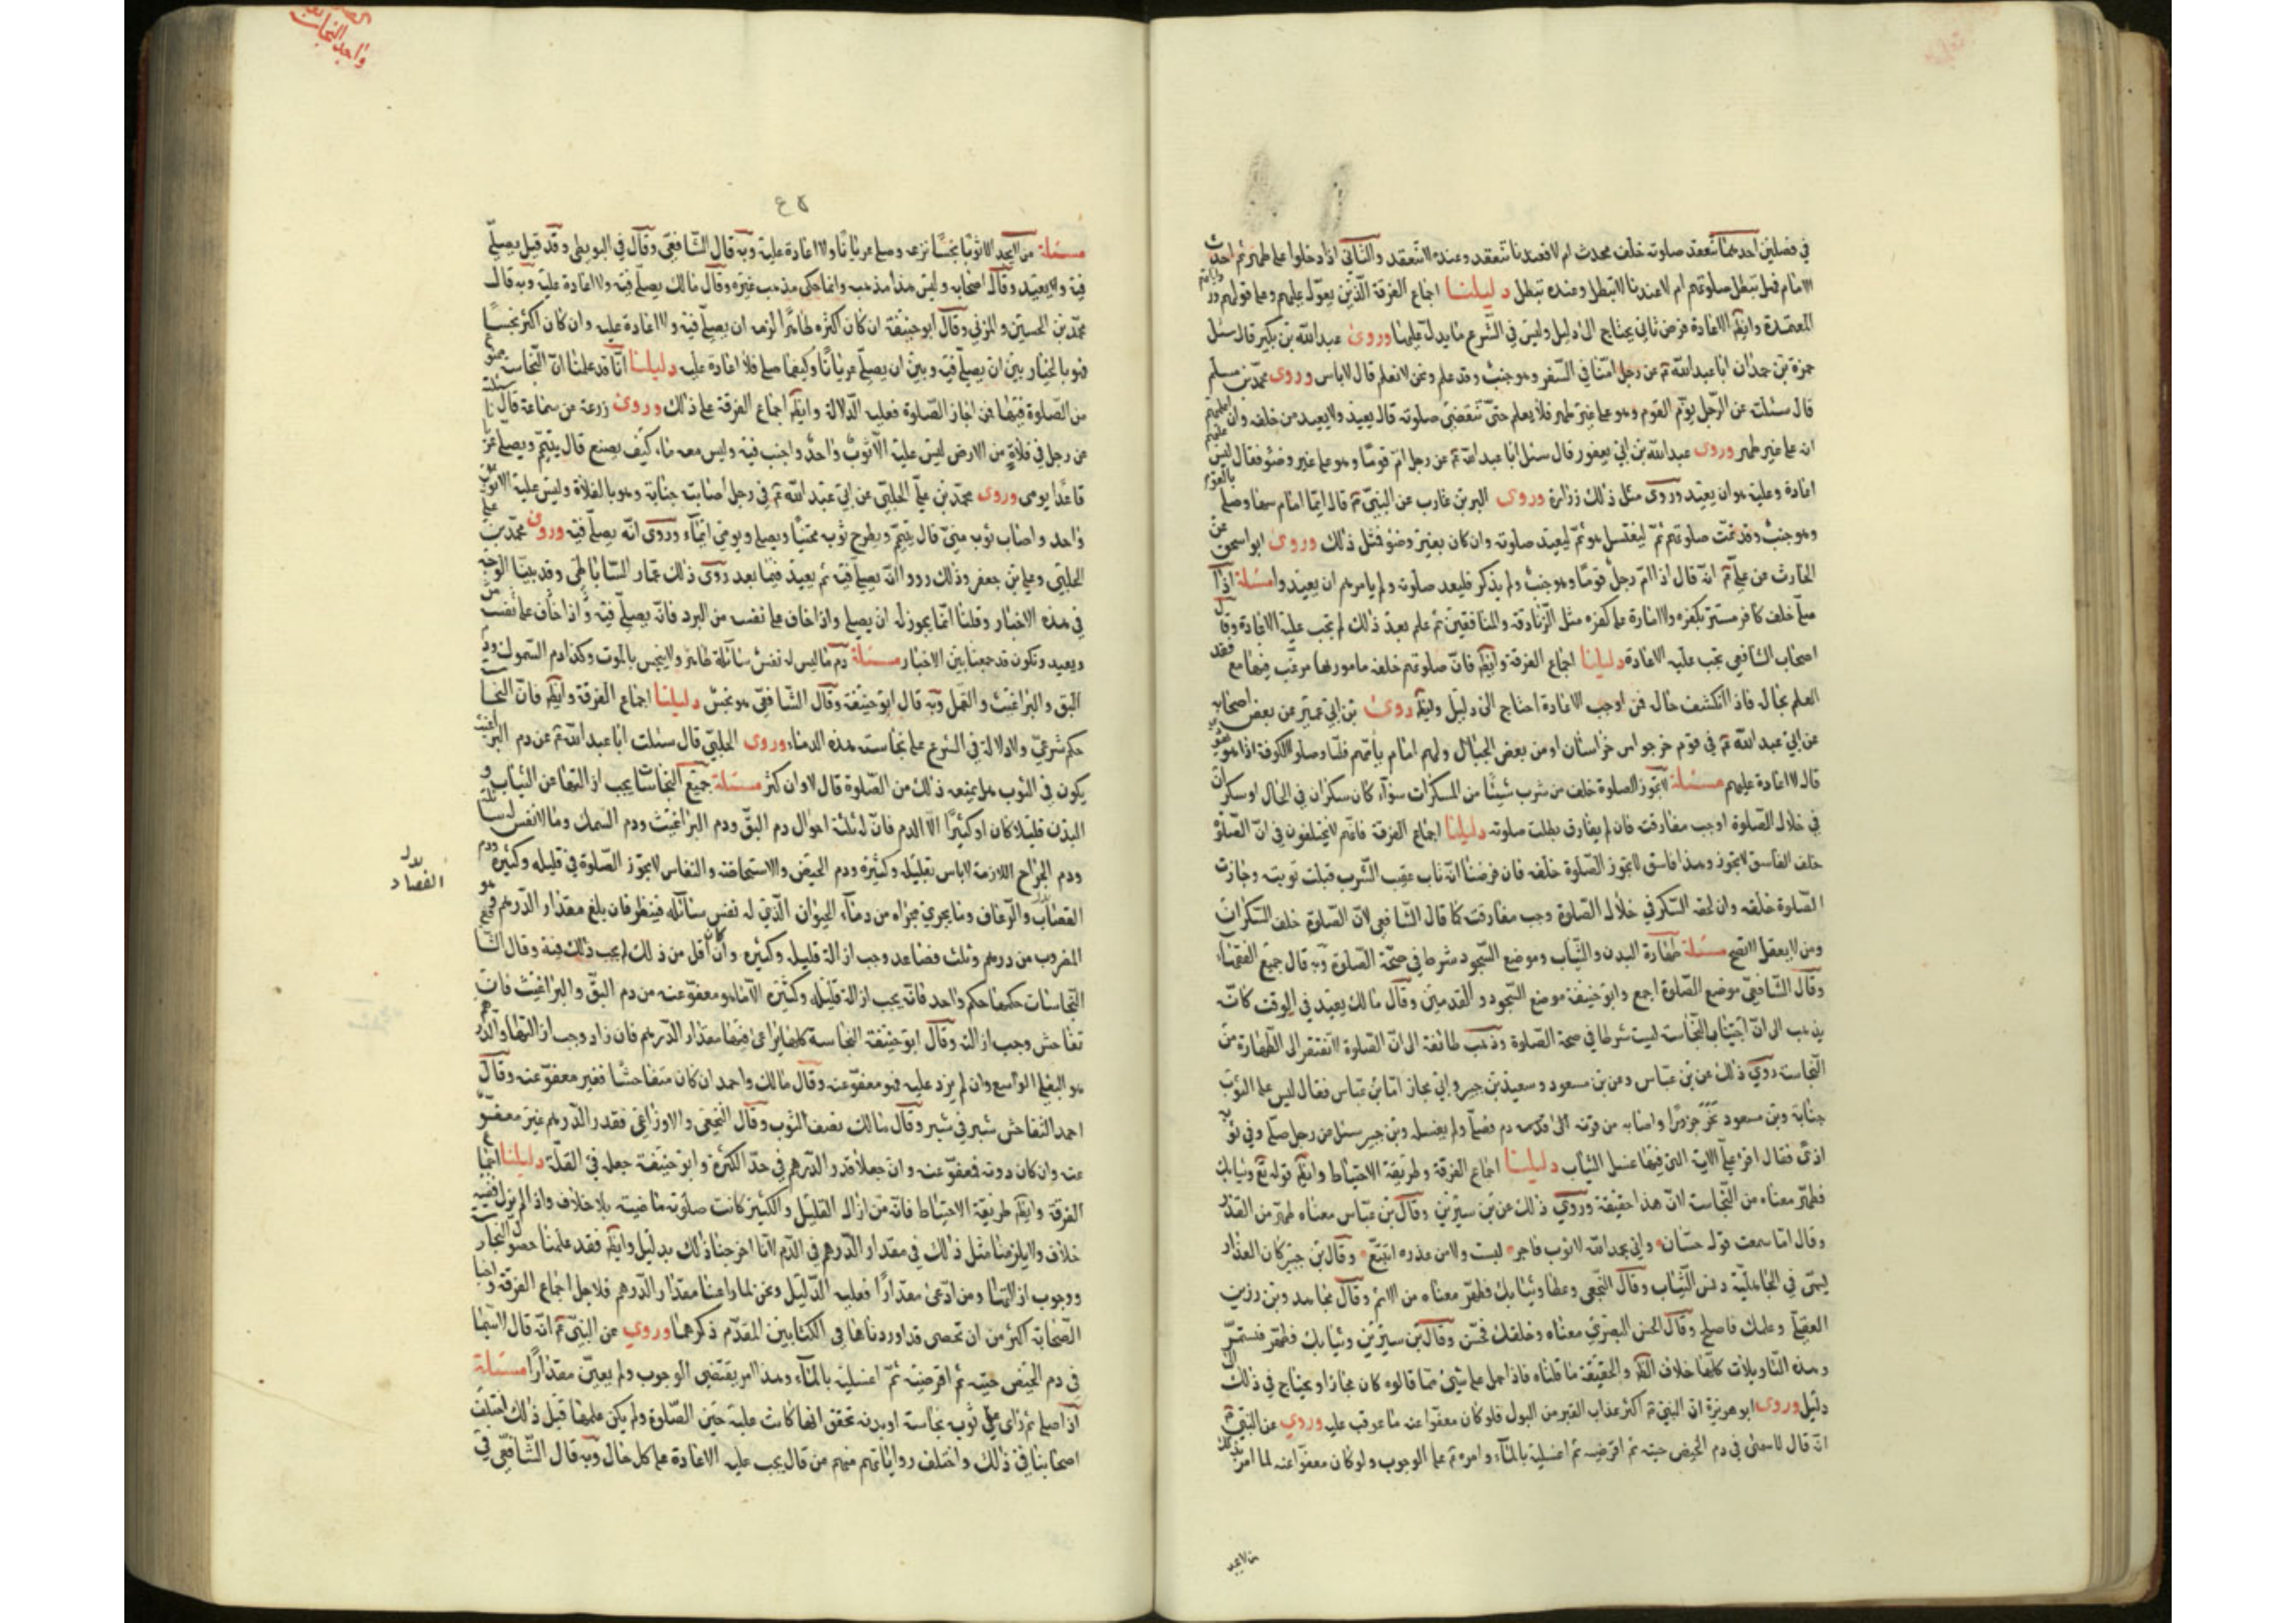 في فصلين احدهما تنعقد صلوته خلف محدث ام لا فعندنا تنعقد وعنده لا تنعقد والثاني اذا دخلوا على طهر ثم احدث
الامام فهل تبطل صلوتهم ام لا عندنا لا تبطل وعنده تبطل دليلنا اجماع الفرقة الذين يعول عليهم وعلى قولهم ورواياتهم
المعتمدة وايضا الاعادة فرض ثاني يحتاج الى دليل وليس في الشرع ما يدل عليها وروى عبدالله بن بكير قال سئل
حمزة بن حمران ابا عبدالله عن رجل امنا في السفر وهو جنب وقد علم ونحن لا نعلم قال لا باس وروى محمد بن مسلم
قال سئلت عن الرجل يؤم القوم وهو على غير طهر فلا يعلم حتى تنقضي صلوته قال يعيد ولا يعيد من خلفه وان اعلمهم
انه على غير طهر وروى عبدالله بن ابي يعفور قال سئل ابا عبدالله عن رجل ام قوما وهو على غير وضوء فقال ليس عليهم
اعادة وعليه هو ان يعيد وروى مثل ذلك زرارة وروى البر بن عازب عن النبي قال ايما امام سها وصلى بالقوم
وهو جنب وقد تمت صلوتهم ثم ليغتسل هو ثم ليعيد صلوته وان كان بغير وضوء فمثل ذلك وروى ابو اسحق عن
الحارث عن علي انه قال اذا ام رجل قوما وهو جنب ولم يذكر فليعد صلوته ولم يامرهم ان يعيدوا مسئلة اذا
صلى خلف كافر مستتر بكفره ولا امارة على كفره مثل الزنادقة والمنافقين ثم علم بعد ذلك لم تجب عليه الاعادة وقال
اصحاب الشافعي تجب عليه الاعادة دليلنا اجماع الفرقة وايضا فان صلوتهم خلفه مامور بها مرغب فيها مع فقد
العلم بحاله فاذا انكشف حاله فمن اوجب الاعادة احتاج الى دليل وايضا روى بن ابي عمير عن بعض اصحابه
عن ابي عبدالله في قوم خرجوا من خراسان او من بعض الجبال ولهم امام يأمهم فلما وصلوا الكوفة اذا هو يهودي
قال لا اعادة عليهم مسئلة لا تجوز الصلوة خلف من شرب شيئا من المسكرات سوآء كان سكران في الحال او سكر
في خلال الصلوة اوجب مفارقته فان لم يفارق بطلت صلوته دليلنا اجماع الفرقة فانهم لا يختلفون في ان الصلوة
خلف الفاسق لا تجوز وهذا فاسق لا تجوز الصلوة خلفه فان فرضنا انه تاب عقيب الشرب قبلت توبته وجازت
الصلوة خلفه وان لحقه السكر في خلال الصلوة وجب مفارقته كما قال الشافعي لان الصلوة خلف السكران
ومن لا يعقل لا تصح مسئلة طهارة البدن والثياب وموضع السجود شرط في صحة الصلوة وبه قال جميع الفقهاء
وقال الشافعي موضع الصلوة اجمع وابو حنيفة موضع السجود والقدمين وقال مالك يعيد في الوقت كانه
يذهب الى ان اجتناب النجاسة ليست شرطا في صحة الصلوة وذهب طائفة الى ان الصلوة لا تفتقر الى الطهارة من
النجاسة روي ذلك عن بن عباس وعن بن مسعود وسعيد بن جبير وابي مجاز اما بن عباس فقال ليس على الثوب
جنابة وبن مسعود نحر جزورا واصابه من فرثه دم فصلى ولم يغسله وبن جبير سئل من رجل صلى وفي ثوبه
اذى فقال اقرا علي الاية التي فيها غسل الثياب دليلنا اجماع الفرقة وطريقة الاحتياط وايضا قوله تع وثيابك
فطهر معناه من النجاسة لان هذا حقيقة وروي ذلك عن بن سيرين وقال بن عباس معناه طهر من الغدر
وقال اما سمعت قول حسان واني بحمد الله لا ثوب فاجر لبست ولا من غدره اتقنع وقال بن جبير كان الغدار
يسمى في الجاهلية دنس الثياب وقال النخعي وعطا وثيابك فطهر معناه من الاثم وقال مجاهد وبن رزين
العقيلي وعملك فاصلح وقال الحسن البصري معناه وخلقك فحسن وقال بن سيرين وثيابك فطهر فشمر
وهذه التاويلات كلها خلاف الظاهر والحقيقة ما قلناه فاذا حمل على شيئ مما قالوه كان مجازا ويحتاج في ذلك الى
دليل وروى ابو هريرة ان النبي اكثر عذاب القبر من البول فلو كان معفوا عنه ما عوقب عليه وروي عن النبي
انه قال لاسمى في دم الحيض حتيه ثم اقرضيه ثم اغسليه بالمآء وامره على الوجوب ولو كان معفوا عنه لما امر بذلك
من لا يجد
واحد النجاسات
مسئلة من لا يجد الا ثوبا نجسا نزعه وصلى عريانا ولا اعادة عليه وبه قال الشافعي وقال في البويطي وقد قيل يصلي
فيه ولا يعيد وقال اصحابه وليس هذا مذهبه وانما حكى مذهب غيره وقال مالك يصلي فيه ولا اعادة عليه وبه قال
محمد بن الحسين والمزني وقال ابو حنيفة ان كان اكثره طاهرا لزمه ان يصلي فيه ولا اعادة عليه وان كان اكثره نجسا
فهو بالخيار بين ان يصلي فيه وبين ان يصلي عريانا وكيفما صلى فلا اعادة عليه دليلنا انا قد علمنا ان النجاسة ممنوع
من الصلوة فيها فمن اجاز الصلوة فعليه الدلالة وايضا اجماع الفرقة على ذلك وروى زرعة عن سماعة قال سئلته
عن رجل في فلاة من الارض ليس عليه الا ثوب واحد واجنب فيه وليس معه ماء كيف يصنع قال يتيمم ويصلي عريانا
قاعدا يومي وروى محمد بن علي الحلبي عن ابي عبدالله في رجل اصابته جنابة وهو بالفلاة وليس عليه الا ثوب
واحد واصاب ثوبه مني قال يتيمم ويطرح ثوبه مجتنبا ويصلي ويومي ايماء وروى انه يصلي فيه وروى محمد بن علي
الحلبي وعلي بن جعفر وذلك رووا انه يصلي فيه ثم يعيد فيما بعد روى ذلك عمار الساباطي وقد بينا الوجه
في هذه الاخبار وقلنا انما يجوز له ان يصلي واذا خاف على نفسه من البرد فانه يصلي فيه واذا خاف على نفسه من
ويعيد وتكون قد جمعنا بين الاخبار مسئلة دم ما ليس له نفس سائلة طاهر ولا ينجس بالموت وكذا دم السموك ودم
البق والبراغيث والقمل وبه قال ابو حنيفة وقال الشافعي هو نجس دليلنا اجماع الفرقة وايضا فان النجاسة
حكم شرعي ولا دلالة في الشرع على نجاسة هذه الدماء وروى الحلبي قال سئلت ابا عبدالله عن دم البراغيث
يكون في الثوب هل يمنعه ذلك من الصلوة قال لا وان كثر مسئلة جميع النجاسات يجب ازالتها عن الثياب و
البدن قليلا كان او كثيرا الا الدم فان له ثلثة احوال دم البق ودم البراغيث ودم السمك وما لا نفس له سائلة
ودم الجراح اللازمة لا باس بقليله وكثيره ودم الحيض والاستحاضة والنفاس لا تجوز الصلوة في قليله وكثيره ودم
بدل
الفصاد
القصاب والرعاف وما يجري مجراه من دماء الحيوان الذي له نفس سائلة فينظر فان بلغ مقدار الدرهم وهو
المضروب من درهم وثلث فصاعدا وجب ازالة قليله وكثيره وان كان اقل من ذلك لم يجب ذلك فيه وقال الشافعي
النجاسات حكمها حكم واحد فانه يجب ازالة قليله وكثيره الا ما هو معفو عنه من دم البق والبراغيث فان
تفاحش وجب ازالته وقال ابو حنيفة النجاسة كلها يراعى فيها مقدار الدرهم فان زاد وجب ازالتها والدرهم
هو البغلي الواسع وان لم يزد عليه فهو معفو عنه وقال مالك واحمد ان كان متفاحشا فغير معفو عنه وقال
احمد التفاحش شبر في شبر وقال مالك نصف الثوب وقال النخعي والاوزاعي فقدر الدرهم غير معفو
عنه وان كان دونه فمعفو عنه وان جعلا قدر الدرهم في حد الكثرة وابو حنيفة جعله في القلة دليلنا اجماع
الفرقة وايضا طريقة الاحتياط فانه من ازال القليل والكثير كانت صلوته ماضية بلا خلاف واذا لم يزل ففيه
خلاف ولا يلزمنا مثل ذلك في مقدار الدرهم في الدم لانا اخرجنا ذلك بدليل وايضا فقد علمنا حصول النجاسة
ووجوب ازالتها ومن ادعى مقدارا فعليه الدليل ونحن لما راعينا مقدار الدرهم فلاجل اجماع الفرقة واخبار
الصحابة اكثر من ان تحصى قد اوردناها في الكتابين المقدم ذكرهما وروي عن النبي انه قال لاسما
في دم الحيض حتيه ثم اقرضيه ثم اغسليه بالمآء وهذا امر يقتضي الوجوب ولم يعين مقدارا مسئلة
اذا صلى ثم راى على ثوبه نجاسة او بدنه تحقق انها كانت عليه حين الصلوة ولم يكن علمها قبل ذلك اختلف
اصحابنا في ذلك واختلف رواياتهم منهم من قال يجب عليه الاعادة على كل حال وبه قال الشافعي في